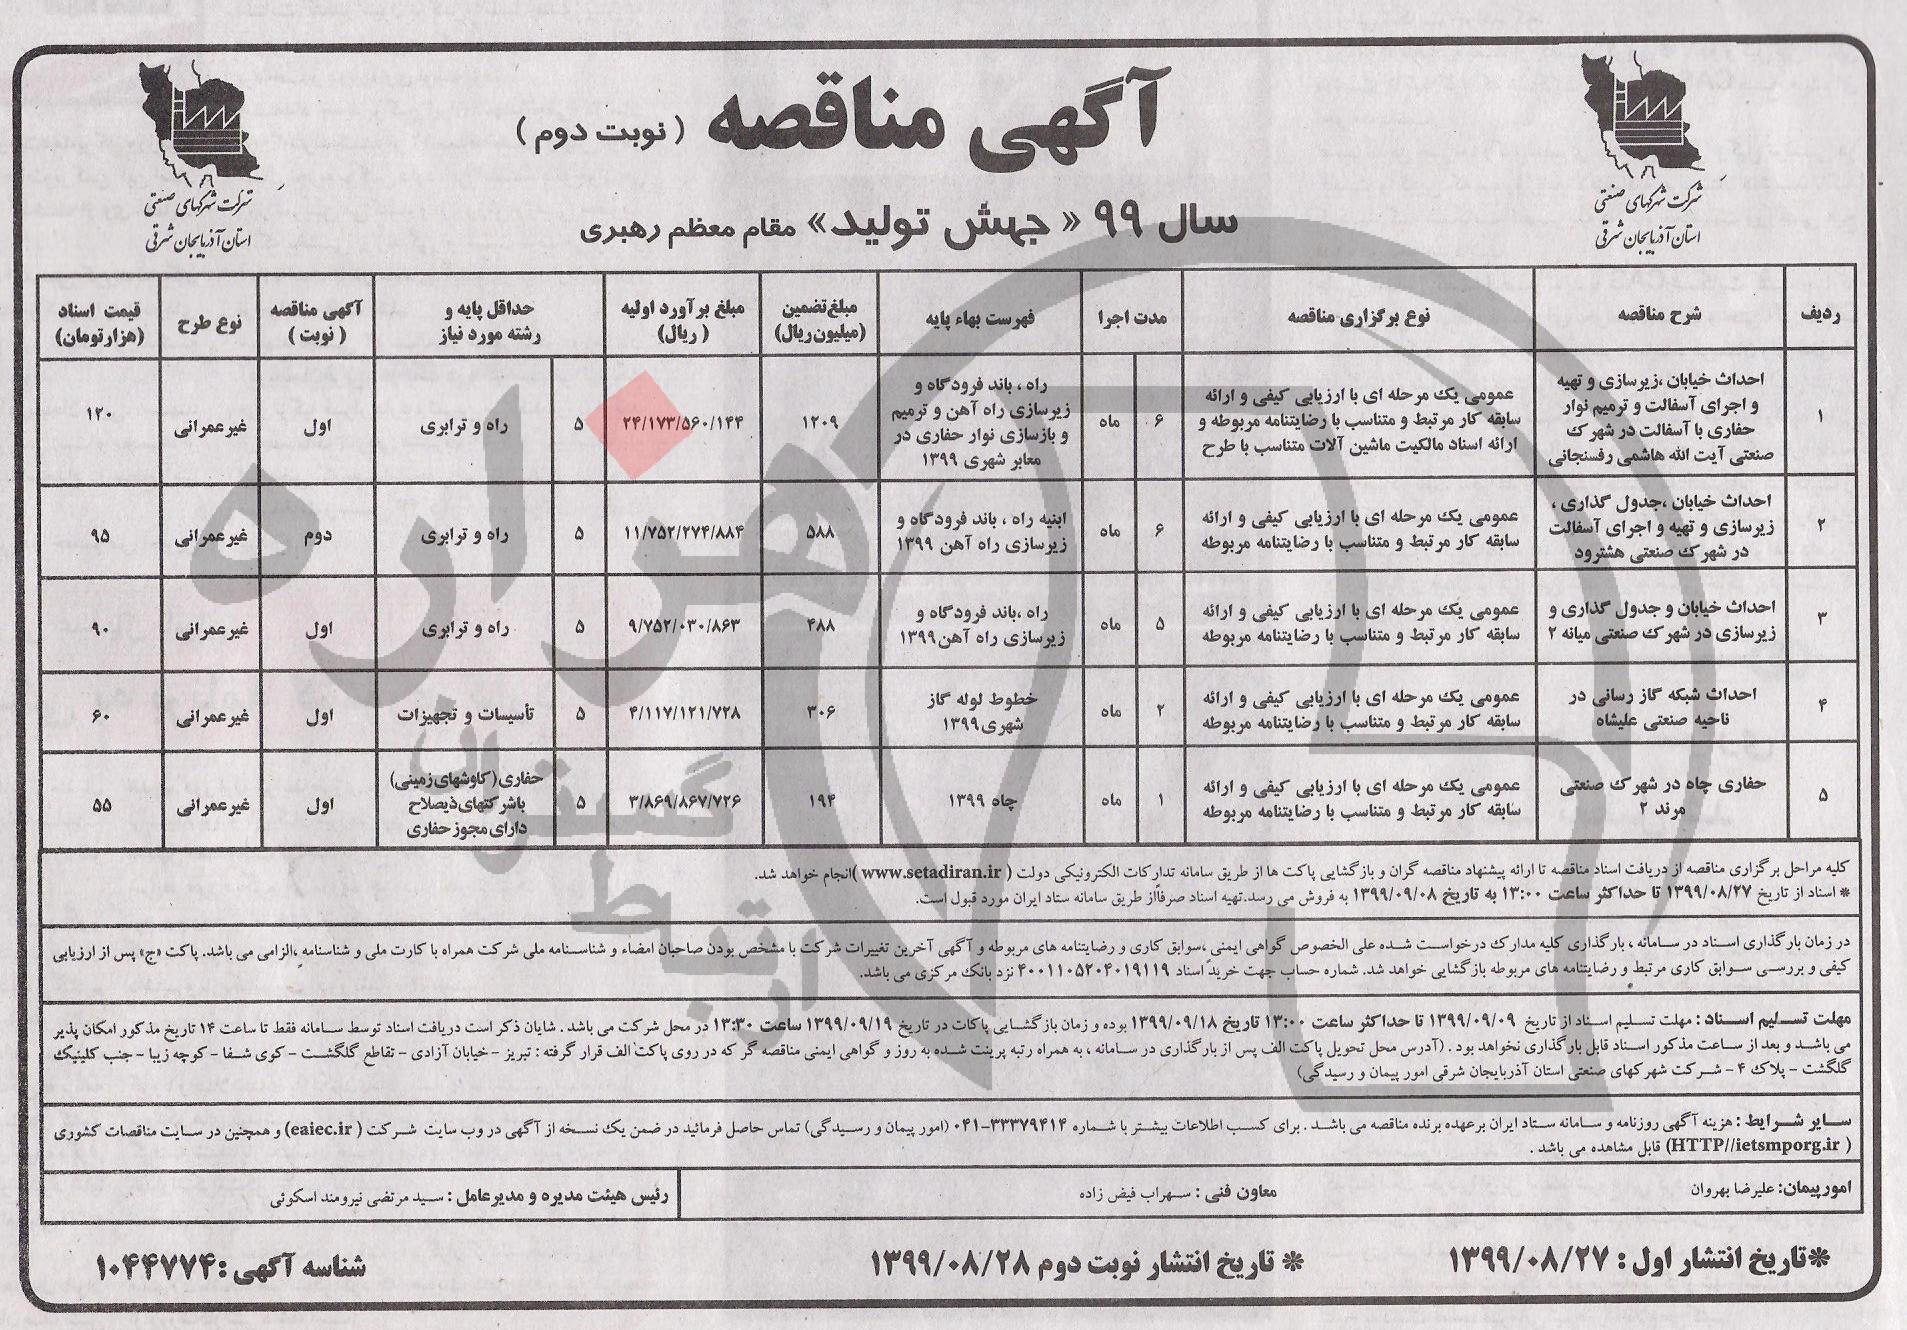 آگهی مناقصه ( نوبت دوم )
سال ۹۹ « جهش تولید» مقام معظم رهبری
شرکت شهرکهای صنعتی
استان آذربایجان شرقی
شرکت شهرکهای صنعتی
استان آذربایجان شرقی
ردیف شرح مناقصه نوع برگزاری مناقصه مدت اجرا فهرست بهاء پایه مبلغ تضمین (میلیون ریال) مبلغ برآورد اولیه (ریال) حداقل پایه و رشته مورد نیاز آگهی مناقصه (نوبت) نوع طرح قیمت اسناد (هزارتومان)
۱ احداث خیابان ،زیرسازی و تهیه و اجرای آسفالت و ترمیم نوار حفاری با آسفالت در شهرک صنعتی آیت الله هاشمی رفسنجانی عمومی یک مرحله ای با ارزیابی کیفی و ارائه سابقه کار مرتبط و متناسب با رضایتنامه مربوطه و ارائه اسناد مالکیت ماشین آلات متناسب با طرح ۶ ماه راه ، باند فرودگاه و زیرسازی راه آهن و ترمیم و بازسازی نوار حفاری در معابر شهری ۱۳۹۹ ۱۲۰۹ ۲۴/۱۷۳/۵۶۰/۱۴۴ ۵ راه و ترابری اول غیرعمرانی ۱۲۰
۲ احداث خیابان ،جدول گذاری ، زیرسازی و تهیه و اجرای آسفالت در شهرک صنعتی هشترود عمومی یک مرحله ای با ارزیابی کیفی و ارائه سابقه کار مرتبط و متناسب با رضایتنامه مربوطه ۶ ماه ابنیه راه ، باند فرودگاه و زیرسازی راه آهن ۱۳۹۹ ۵۸۸ ۱۱/۷۵۲/۲۷۴/۸۸۴ ۵ راه و ترابری دوم غیرعمرانی ۹۵
۳ احداث خیابان و جدول گذاری و زیرسازی در شهرک صنعتی میانه ۲ عمومی یک مرحله ای با ارزیابی کیفی و ارائه سابقه کار مرتبط و متناسب با رضایتنامه مربوطه ۵ ماه راه ،باند فرودگاه و زیرسازی راه آهن۱۳۹۹ ۴۸۸ ۹/۷۵۲/۰۳۰/۸۶۳ ۵ راه و ترابری اول غیرعمرانی ۹۰
۴ احداث شبکه گاز رسانی در ناحیه صنعتی علیشاه عمومی یک مرحله ای با ارزیابی کیفی و ارائه سابقه کار مرتبط و متناسب با رضایتنامه مربوطه ۲ ماه خطوط لوله گاز شهری۱۳۹۹ ۳۰۶ ۴/۱۱۷/۱۲۱/۷۲۸ ۵ تأسیسات و تجهیزات اول غیرعمرانی ۶۰
۵ حفاری چاه در شهرک صنعتی مرند ۲ عمومی یک مرحله ای با ارزیابی کیفی و ارائه سابقه کار مرتبط و متناسب با رضایتنامه مربوطه ۱ ماه چاه ۱۳۹۹ ۱۹۴ ۳/۸۶۹/۸۶۷/۷۲۶ ۵ حفاری(کاوشهای زمینی) باشرکتهای ذیصلاح دارای مجوز حفاری اول غیرعمرانی ۵۵
کلیه مراحل برگزاری مناقصه از دریافت اسناد مناقصه تا ارائه پیشنهاد مناقصه گران و بازگشایی پاکت ها از طریق سامانه تدارکات الکترونیکی دولت ( www.setadiran.ir )انجام خواهد شد.
* اسناد از تاریخ ۱۳۹۹/۰۸/۲۷ تا حداکثر ساعت ۱۳:۰۰ به تاریخ ۱۳۹۹/۰۹/۰۸ به فروش می رسد.تهیه اسناد صرفاًاز طریق سامانه ستاد ایران مورد قبول است.
در زمان بارگذاری اسناد در سامانه ، بارگذاری کلیه مدارک درخواست شده علی الخصوص گواهی ایمنی ،سوابق کاری و رضایتنامه های مربوطه و آگهی آخرین تغییرات شرکت با مشخص بودن صاحبان امضاء و شناسنامه ملی شرکت همراه با کارت ملی و شناسنامه ،الزامی می باشد. پاکت «ج» پس از ارزیابی
کیفی و بررسی سوابق کاری مرتبط و رضایتنامه های مربوطه بازگشایی خواهد شد. شماره حساب جهت خرید اسناد ۴۰۰۱۱۰۵۲۰۴۰۱۹۱۱۹ نزد بانک مرکزی می باشد.
مهلت تسلیم اسناد : مهلت تسلیم اسناد از تاریخ ۱۳۹۹/۰۹/۰۹ تا حداکثر ساعت ۱۳:۰۰ تاریخ ۱۳۹۹/۰۹/۱۸ بوده و زمان بازگشایی پاکات در تاریخ ۱۳۹۹/۰۹/۱۹ ساعت ۱۳:۳۰ در محل شرکت می باشد . شایان ذکر است دریافت اسناد توسط سامانه فقط تا ساعت ۱۴ تاریخ مذکور امکان پذیر
می باشد و بعد از ساعت مذکور اسناد قابل بارگذاری نخواهد بود . (آدرس محل تحویل پاکت الف پس از بارگذاری در سامانه ، به همراه رتبه پرینت شده به روز و گواهی ایمنی مناقصه گر که در روی پاکت الف قرار گرفته : تبریز - خیابان آزادی - تقاطع گلگشت - کوی شفا - کوچه زیبا - جنب کلینیک
گلگشت - پلاک ۴ - شرکت شهرکهای صنعتی استان آذربایجان شرقی امور پیمان و رسیدگی)
سایر شرایط : هزینه آگهی روزنامه و سامانه ستاد ایران برعهده برنده مناقصه می باشد . برای کسب اطلاعات بیشتر با شماره ۳۳۳۷۹۴۱۴-۰۴۱ (امور پیمان و رسیدگی) تماس حاصل فرمائید در ضمن یک نسخه از آگهی در وب سایت شرکت ( eaiec.ir) و همچنین در سایت مناقصات کشوری
( HTTP//ietsmporg.ir) قابل مشاهده می باشد .
امورپیمان: علیرضا بهروان معاون فنی : سهراب فیض زاده رئیس هیئت مدیره و مدیرعامل : سید مرتضی نیرومند اسکوئی
*تاریخ انتشار اول : ۱۳۹۹/۰۸/۲۷ * تاریخ انتشار نوبت دوم ۱۳۹۹/۰۸/۲۸ شناسه آگهی :۱۰۴۴۷۷۴
هزاره
ارتباط گستران